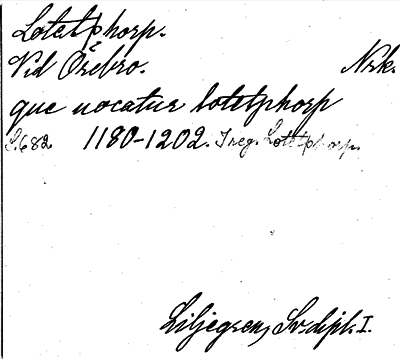 Lotetphorp.
Vid Örebro. Nrk.
que uocatur lotetphorp
S. 682. 1180-1202. I reg. Lotetphorp.
Liljegren, Sv. dipl. I.